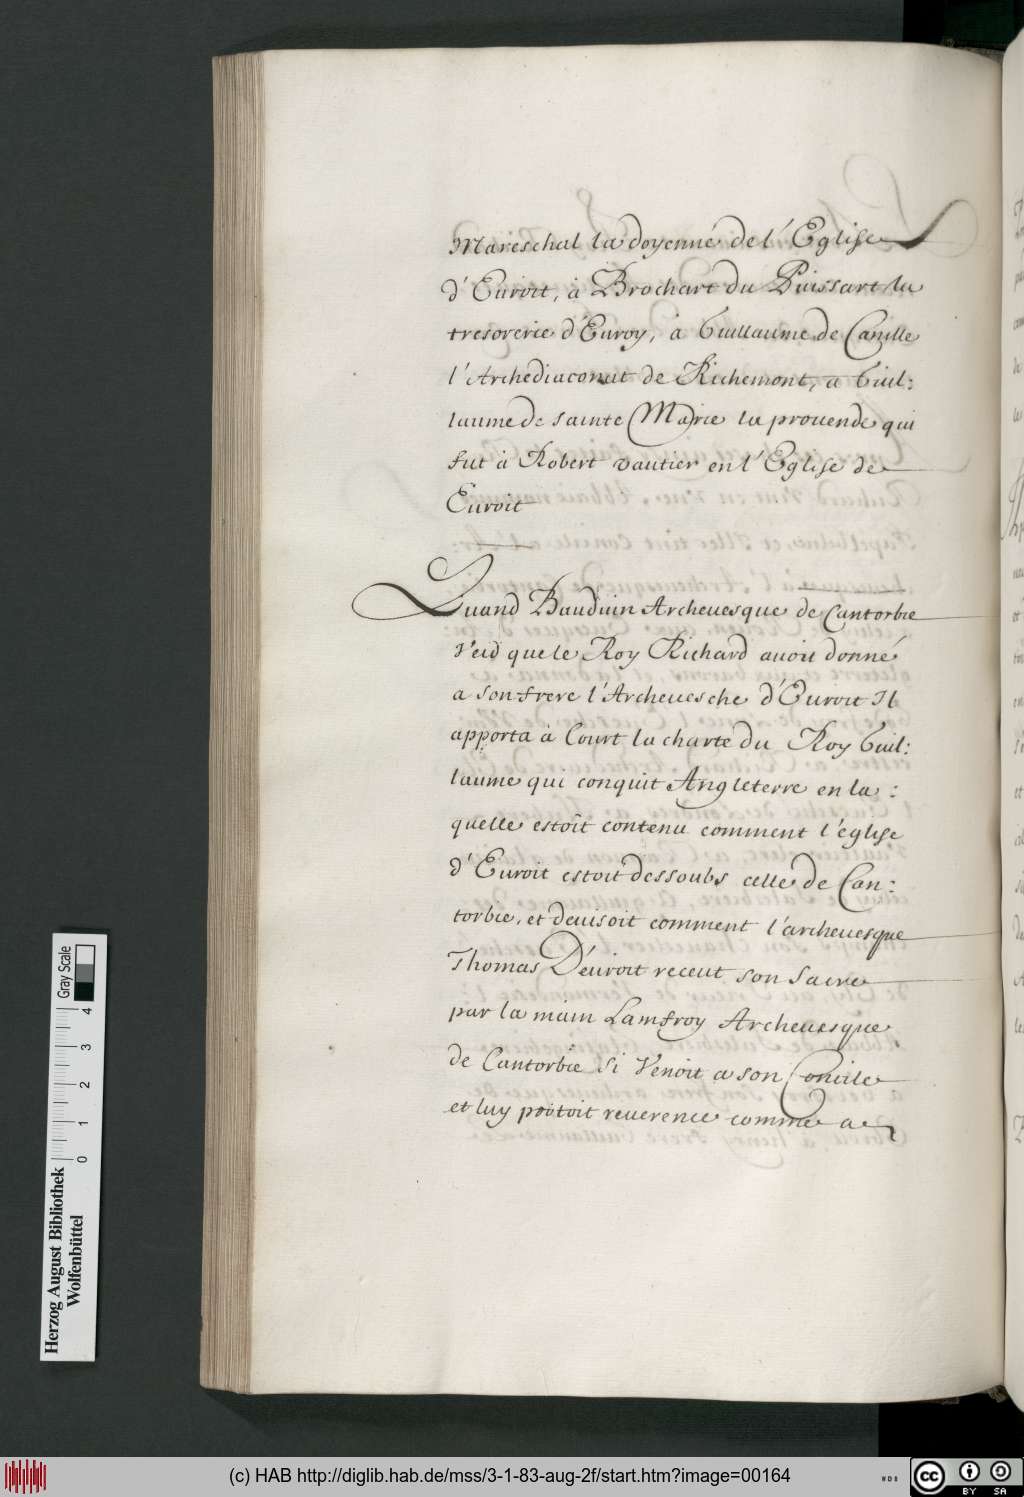 Mareschal la doyenné de l'Eglise
d'Euroit, à Brochart du Puissart la
tresorerie d'Euroy, à Guillaume de Canille
l'Archediaconat de Richemont, a Guil:
laume de sainte Marie la prouende qui
fut à Robert vautier en l'Eglise de
Euroit
Quand Bauduin Archeuesque de Cantorbie
veid que le Roy Richard auoit donné
a son frere l'Archeuesche d'Euroit Il
apporta à Court la charte du Roy Guil:
laume qui conquit Angleterre en la :
quelle estoit contenu comment l'église
d'Euroit estoit dessoubs celle de Can:
torbie, et deuisoit comment l'archeuesque
Thomas D'euroit receut son sacre
par la main Lamfroy Archeuesque
de Cantorbie si Venoit a son Concile
et luy portoit reuerence comme a
Gray Scale
4
3
2
1
0
Herzog August Bibliothek
Wolfenbüttel
(c) HAB http://diglib.hab.de/mss/3-1-83-aug-2f/start.htm?image=00164
WDB
cc
BY SA